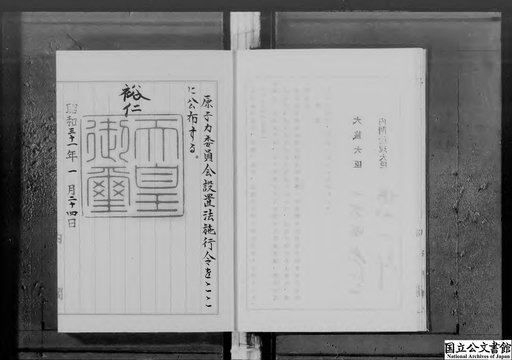 原子力委員会設置法施行令をここ
に公布する。
裕仁
天皇
御璽
昭和三十一年一月二十四日
国立公文書館
National Archives of Japan